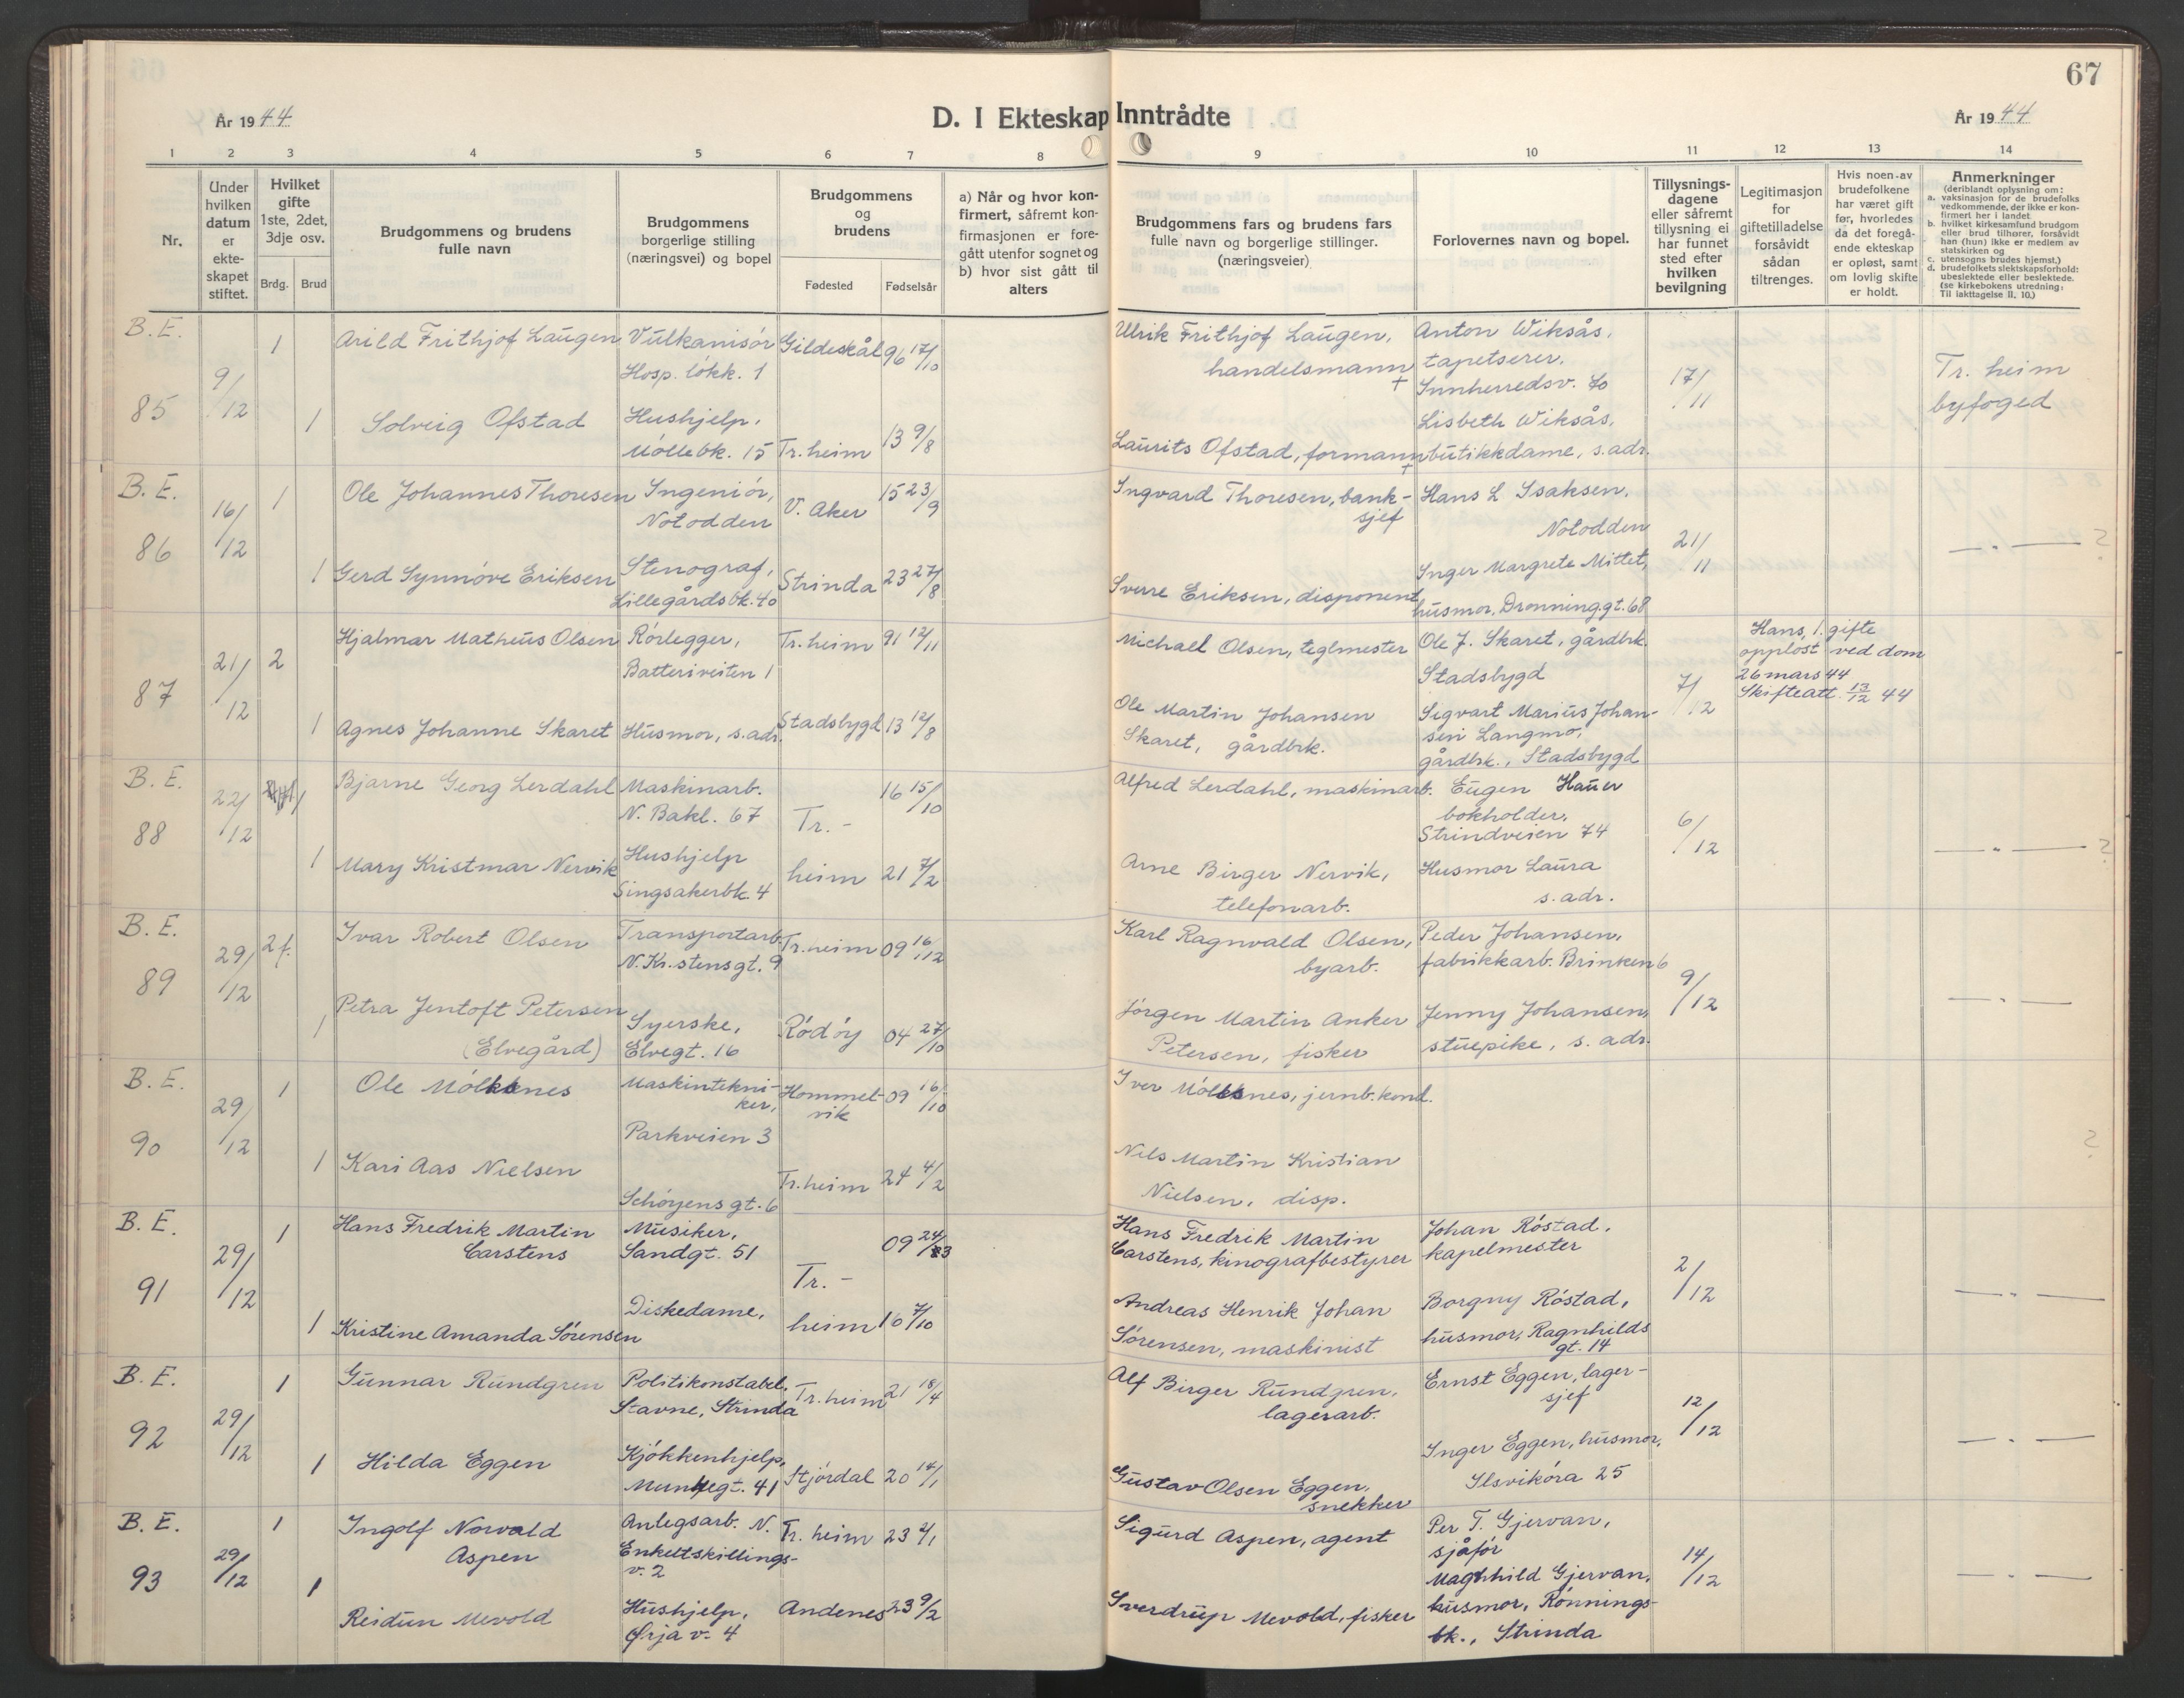 67
År 1944
D. I Ekteskap Inntrådte
År 1944
1 2 3 4 5 6 7 8 9 10 11 12 13 14
Nr.
Under hvilken datum er ekte- skapet stiftet.
Hvilket gifte 1ste, 2det, 3dje osv.
Brdg. Brud
Brudgommens og brudens fulle navn
Brudgommens borgerlige stilling (næringsvei) og bopel
Brudgommens og brudens
Fødested Fødselsår
a) Når og hvor kon- firmert, såfremt kon- firmasjonen er fore- gått utenfor sognet og b) hvor sist gått til alters
Brudgommens fars og brudens fars fulle navn og borgerlige stillinger. (næringsveier)
Forlovernes navn og bopel.
Tillysnings- dagene eller såfremt tillysning ei har funnet sted efter hvilken bevilgning
Legitimasjon for giftetilladelse forsåvidt sådan tiltrenges.
Hvis noen av brudefolkene har været gift før, hvorledes da det foregå- ende ekteskap er opløst, samt om lovlig skifte er holdt.
Anmerkninger
(deriblandt oplysning om:
a. vaksinasjon for de brudefolks vedkommende, der ikke er kon- firmert her i landet
b. hvilket kirkesamfund brudgom eller brud tilhører, forsåvidt han (hun) ikke er medlem av statskirken og
c. utensogns brudes hjemst.)
d. brudefolkets slektskapsforhold: ubeslektede eller beslektede. (se kirkebokens utredning: Til iakttagelse II, 10.)
B. E.
85
9/12
1
Arild Frithjof Laugen
Vulkanisør
Hosp. løkk. 1
Gildeskål
96 17/10
Ulrik Frithjof Laugen,
handelsmann
+
Anton Wiksås,
tapetserer,
Innherredsv. 70
17/11
Tr. heim
byfoged
1
Solveig Ofstad
Hushjelp,
Møllebk. 15
Tr. heim
13 9/8
Laurits Ofstad, formann
+
Lisbeth Wiksås,
butikkdame, s. adr.
B. E.
86
16/12
1
Ole Johannes Thoresen
Ingeniør,
Notodden
V. Aker
15 23/9
Ingvard Thoresen, bank-
sjef
Hans L Isaksen,
Notodden
21/11
— " — ?
1
Gerd Synnøve Eriksen
Stenograf,
Lillegårdsbk. 40
Strinda
23 27/8
Sverre Eriksen, disponent
Inger Margrete Mittet,
husmor, Dronning.gt. 68
87
21/12
2
Hjalmar Matheus Olsen
Rørlegger,
Batteriveiten 1
Tr. heim
91 12/11
Michael Olsen, teglmester
Ole J. Skaret, gårdbrk.
Stadsbygd
7/12
Hans, 1. gifte
oppløst ved dom
26 mars 44
Skifteatt. 13/12 44
1
Agnes Johanne Skaret
Husmor, s. adr.
Stadsbygd
13 12/8
Ole Martin Johansen
Skaret, gårdbrk.
Sigvart Marius Johan-
sen Langmo,
gårdbrk., Stadsbygd
B. E.
88
22/12
1
Bjarne Georg Lerdahl
Maskinarb.
N. Bakl. 67
Tr. -
16 15/10
Alfred Lerdahl, maskinarb.
Eugen Hauer
bokholder,
Strindveien 74
6/12
— " — ?
1
Mary Kristmar Nervik
Hushjelp
Singsakerbk. 4
heim
21 7/2
Arne Birger Nervik,
telefonarb.
Husmor Laura
s. adr.
B. E.
89
29/12
2 f.
Ivar Robert Olsen
Transportarb.
N. Kr. stensgt. 9
Tr. heim
09 16/12
Karl Ragnvald Olsen,
byarb.
Peder Johansen,
fabrikkarb. Brinken 6
9/12
— " —
1
Petra Jentoft Petersen
(Elvegård)
Syerske,
Elvegt. 16
Rødøy
04 27/10
Jørgen Martin Anker
Petersen, fisker
Jenny Johansen,
stuepike, s. adr.
B. E.
90
29/12
1
Ole Mølknes
Maskintekni-
ker,
Parkveien 3
Hommel-
vik
09 16/10
Iver Mølknes, jernb. kond.
?
1
Kari Aas Nielsen
Schøyens gt. 6
Tr. heim
24 4/2
Nils Martin Kristian
Nielsen, disp.
B. E.
91
29/12
1
Hans Fredrik Martin
Carstens
Musiker,
Sandgt. 51
Tr. -
09 24/3
Hans Fredrik Martin
Carstens, kinografbestyrer
Johan Røstad,
kapelmester
2/12
— " —
1
Kristine Amanda Sørensen
Diskedame,
heim
16 7/10
Andreas Henrik Johan
Sørensen, maskinist
Borgny Røstad,
husmor, Ragnhilds
gt. 14
B. E.
92
29/12
1
Gunnar Rundgren
Politikonstabel,
Stavne, Strinda
Tr. heim
21 18/4
Alf Birger Rundgren,
lagerarb.
Ernst Eggen, lager-
sjef
12/12
— " —
1
Hilda Eggen
Kjøkkenhjelp,
Munkegt. 41
Stjørdal
20 14/1
Gustav Olsen Eggen,
snekker
Inger Eggen, husmor,
Ilsvikøra 25
B. E.
93
29/12
1
Ingolf Norvald
Aspen
Anlegsarb. N.
Enkeltskillings-
v. 2
Tr. heim
23 2/1
Sigurd Aspen, agent
Per T. Gjervan,
sjåfør
14/12
— " —
1
Reidun Mevold
Hushjelp,
Ørja v. 4
Andenes
23 9/2
Sverdrup Mevold, fisker
Magnhild Gjervan,
husmor, Rønnings-
bk., Strinda